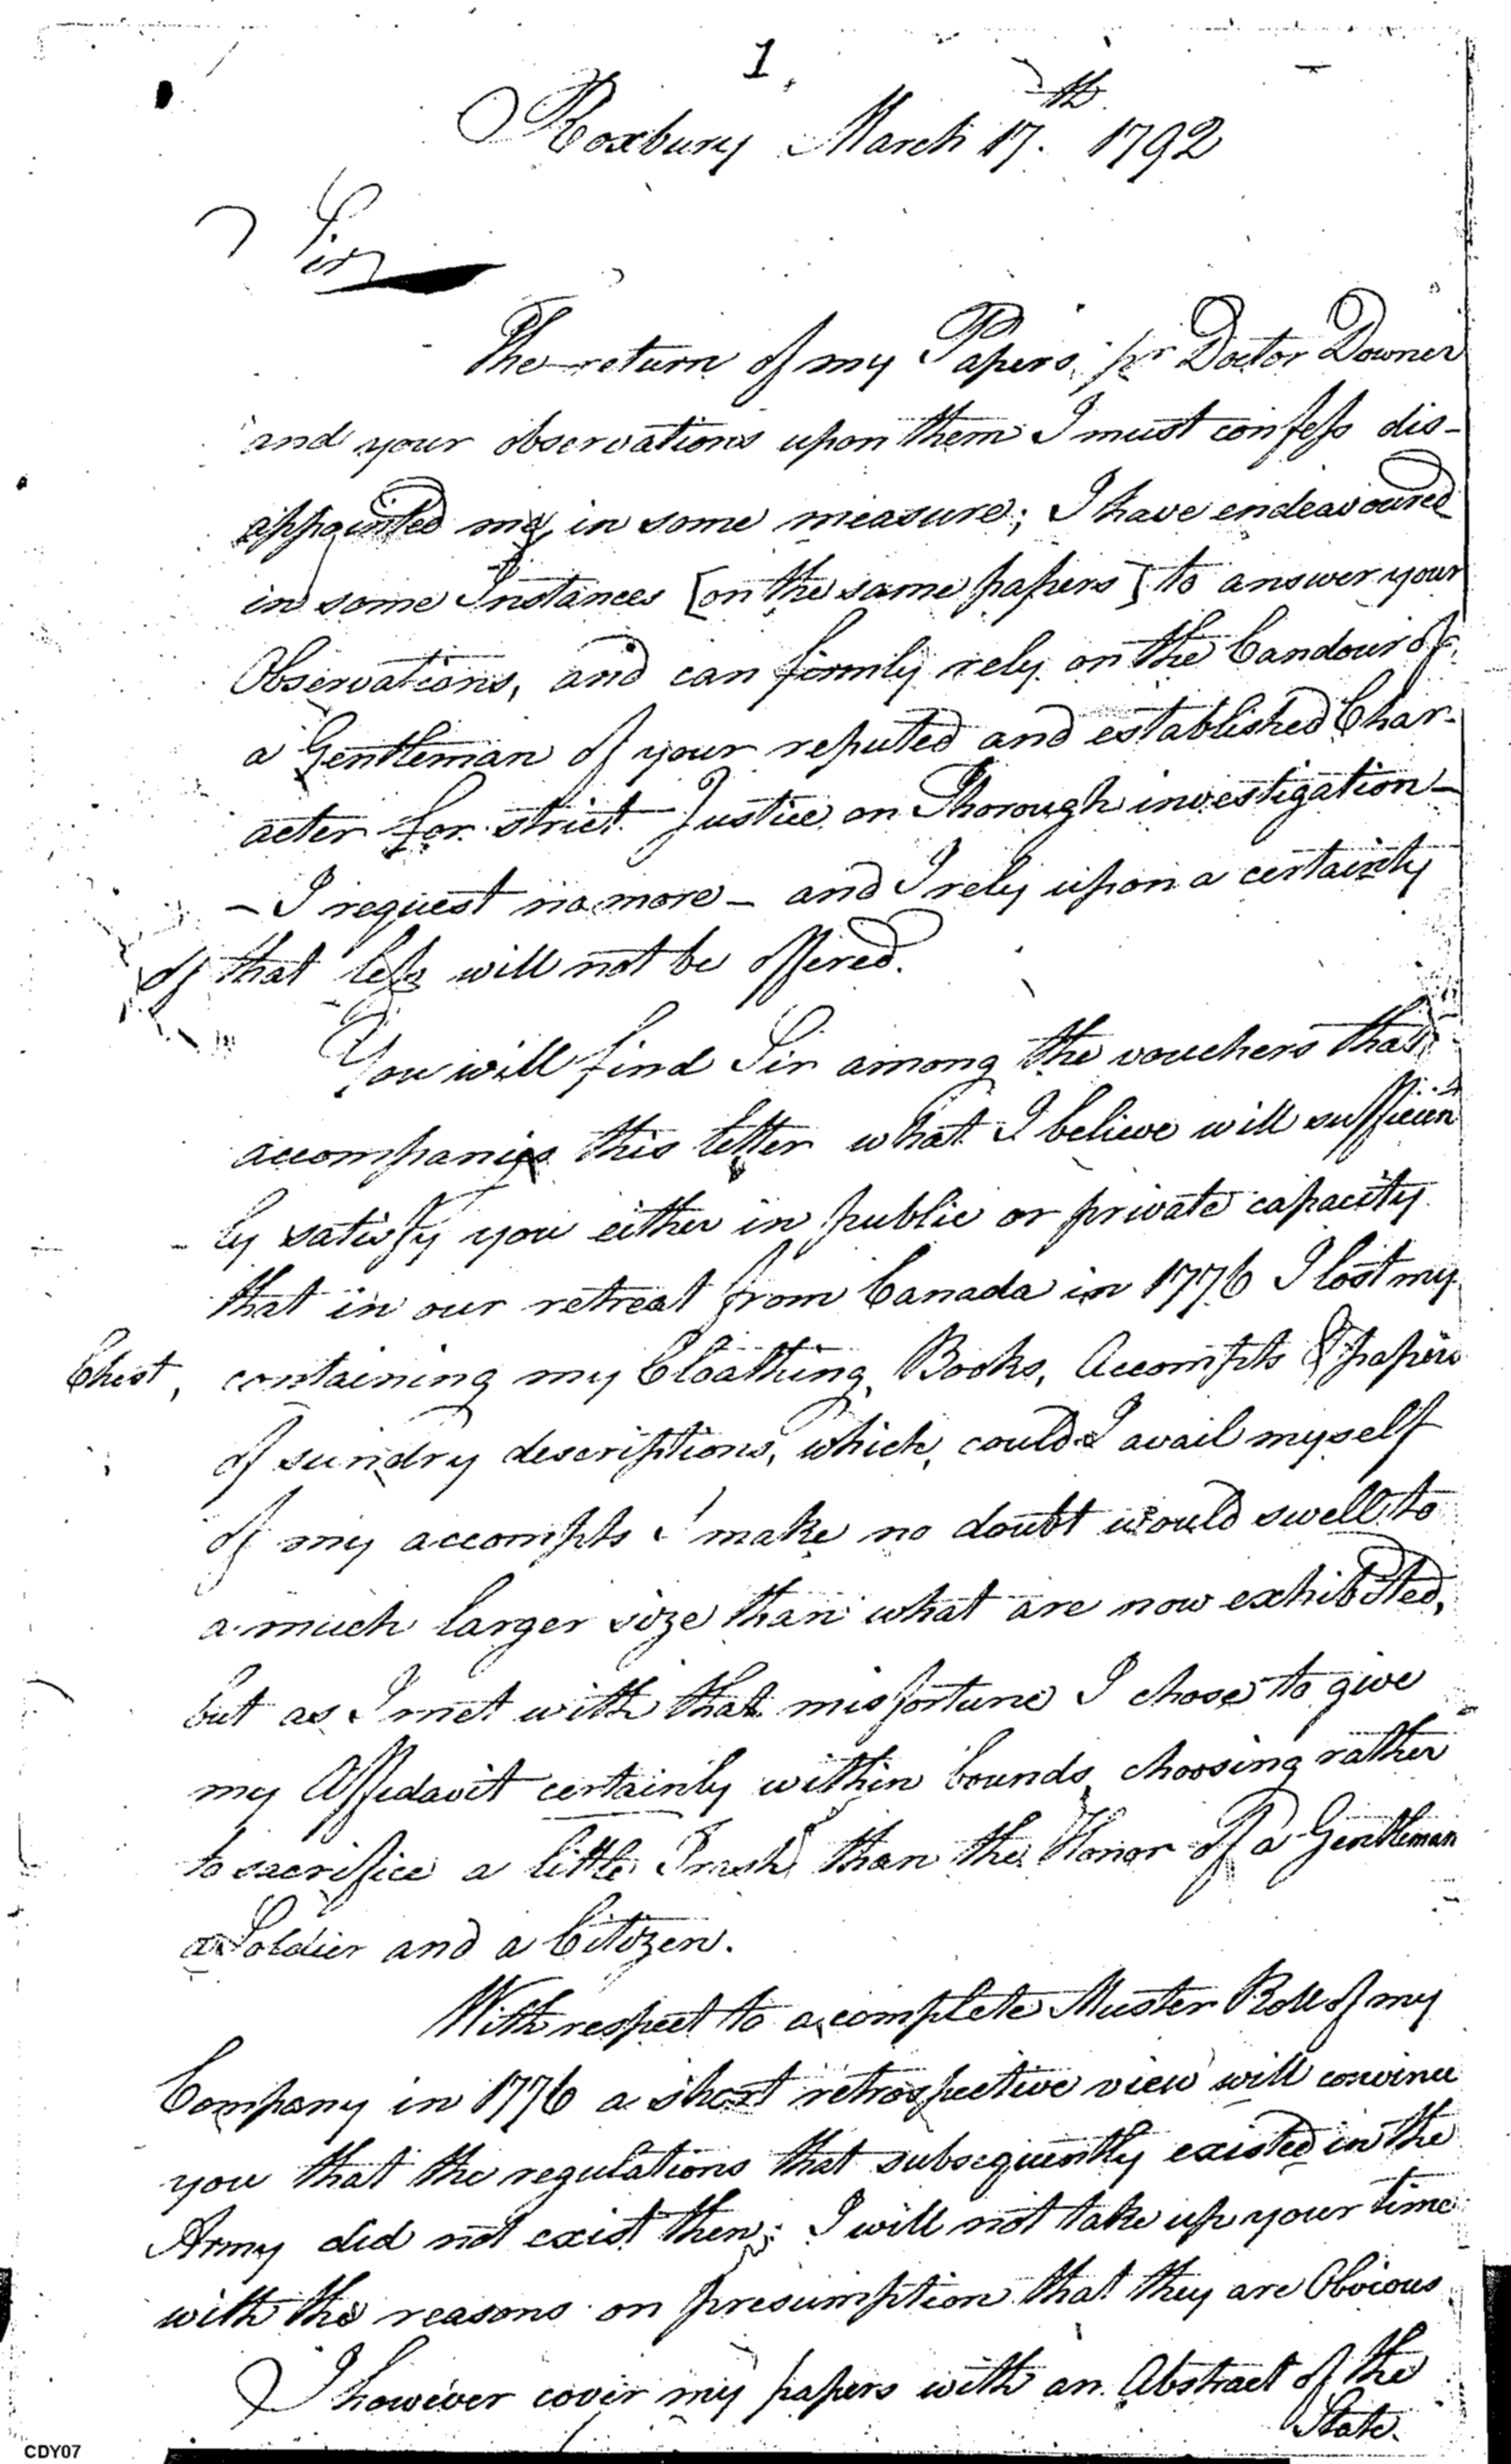 1.
Roxbury March 17.th 1792
Sir
The return of my Papers, pr Doctor Downer
and your observations upon them I must confess dis-
appointed me, in some measure; I have endeavoured
in some Instances [on the same papers] to answer your
Observations, and can firmly rely on the Candour of
a Gentleman of your reputed and established Char-
acter for strict Justice on Thorough investigation -
- I request no more - and I rely upon a certainty
of that less will not be offered.
You will find Sir among the vouchers that
accompanies this letter what I believe will sufficient
ly satisfy you either in public or private capacity
that in our retreat from Canada in 1776 I lost my
Chest, containing my Cloathing, Books, Accompts & papers
of sundry descriptions, which, could I avail myself
of my accompts I make no doubt would swell to
a much larger size than what are now exhibited,
but as I met with that misfortune I chose to give
my Affidavit certainly within bounds, choosing rather
to sacrifice a little Trash than the Honor of a Gentleman
a Soldier and a Citizen.
With respect to a complete Muster Roll of my
Company in 1776 a short retrospective view will convince
you that the regulations that subsequently existed in the
Army did not exist then; I will not take up your time
with the reasons on presumption that they are Obvious
I however cover my papers with an Abstract of the
State.
CDY07